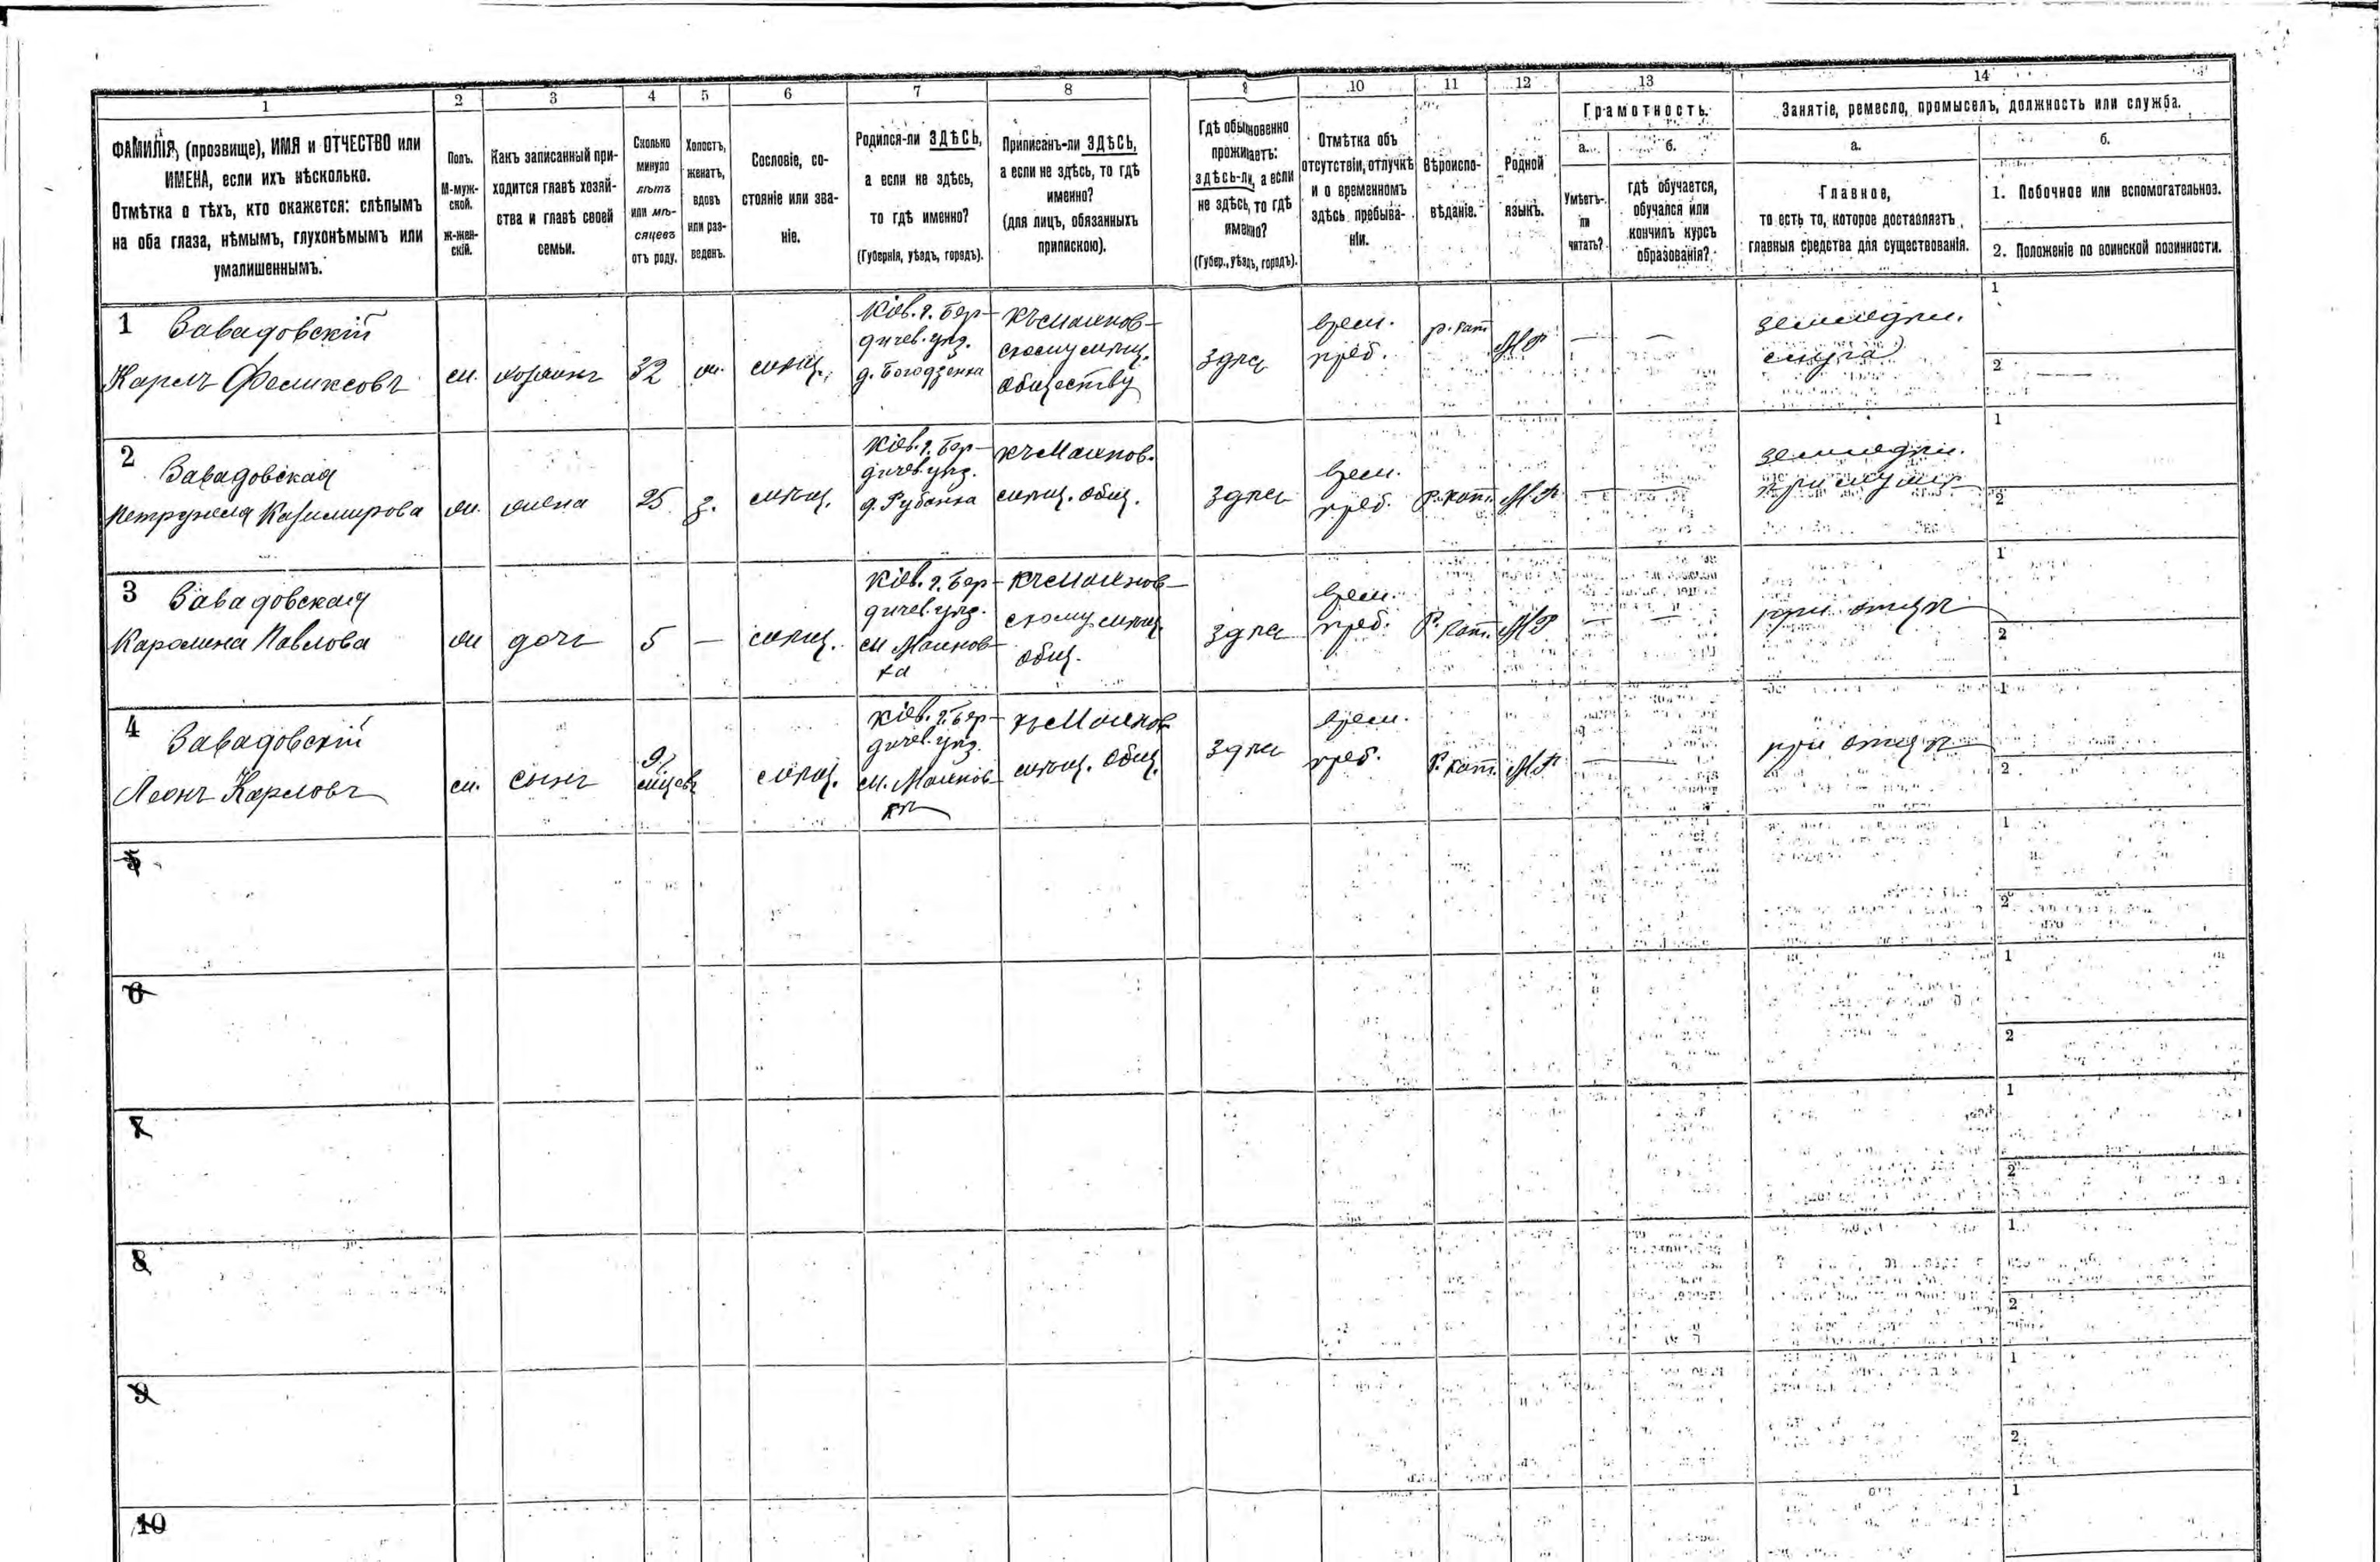 1 2 3 4 5 6 7 8 9 10 11 12 13 14
ФАМИЛІЯ, (прозвище), ИМЯ и ОТЧЕСТВО или
ИМЕНА, если ихъ нѣсколько.
Отмѣтка о тѣхъ, кто окажется: слѣпымъ
на оба глаза, нѣмымъ, глухонѣмымъ или
умалишеннымъ.
Полъ.
М-муж-
ской.
Ж-жен-
скій.
Какъ записанный при-
ходится главѣ хозяй-
ства и главѣ своей
семьи.
Сколько
минуло
лѣтъ
или мѣ-
сяцевъ
отъ роду.
Холостъ,
женатъ,
вдовъ
или раз-
веденъ.
Сословіе, со-
стояніе или зва-
ніе.
Родился-ли ЗДѢСЬ,
а если не здѣсь,
то гдѣ именно?
(Губернія, уѣздъ, городъ).
Приписанъ-ли ЗДѢСЬ,
а если не здѣсь, то гдѣ
именно?
(для лицъ, обязанныхъ
припискою).
Гдѣ обыкновенно
проживаетъ:
здѣсь-ли, а если
не здѣсь, то гдѣ
именно?
(Губер., уѣздъ, городъ).
Отмѣтка объ
отсутствіи, отлучкѣ
и о временномъ
здѣсь пребыва-
ніи.
Вѣроиспо-
вѣданіе.
Родной
языкъ.
Грамотность.
а.
Умѣетъ-
ли
читать?
б.
гдѣ обучается,
обучался или
кончилъ курсъ
образованія?
Занятіе, ремесло, промыселъ, должность или служба.
а.
Главное,
то есть то, которое доставляетъ
главныя средства для существованія.
б.
1. Побочное или вспомогательное.
2. Положеніе по воинской повинности.
1 Завадовскій
Карлъ Феликсовъ
м.
хозяинъ
32
ж.
мѣщ.
Кіев. г. Бер-
дичев. уѣз.
къ Махнов-
скому мѣщ.
обществу
здѣсь
врем.
преб.
р. кат
—
—
земледѣл.
слуга
1
2 —
2 Завадовская
Петрунеля Казимирова
ж.
жена
25
з.
мѣщ.
Кіев. г. Бер-
дичев. уѣз.
къ Махнов.
мѣщ. общ.
здѣсь
врем.
преб.
Р. кат.
—
—
земледѣл.
при мужѣ
1
2
3 Завадовская
Каролина Павлова
ж
дочь
5
—
мѣщ.
Кіев. г. Бер-
дичев. уѣз.
м Махнов-
ка
къ Махнов-
скому мѣщ.
общ.
здѣсь
врем.
преб.
Р. кат.
—
—
при отцѣ
1
2
4 Завадовскій
Леонъ Карловъ
м.
сынъ
9
мѣщ.
Кіев. г. Бер-
дичев. уѣз.
м. Махнов-
кѣ
къ Махнов
мѣщ. общ.
здѣсь
врем.
преб.
Р. кат.
—
—
при отцѣ
1
2
5
1
2
6
1
2
7
1
2
8
1
2
9
1
2
10
1